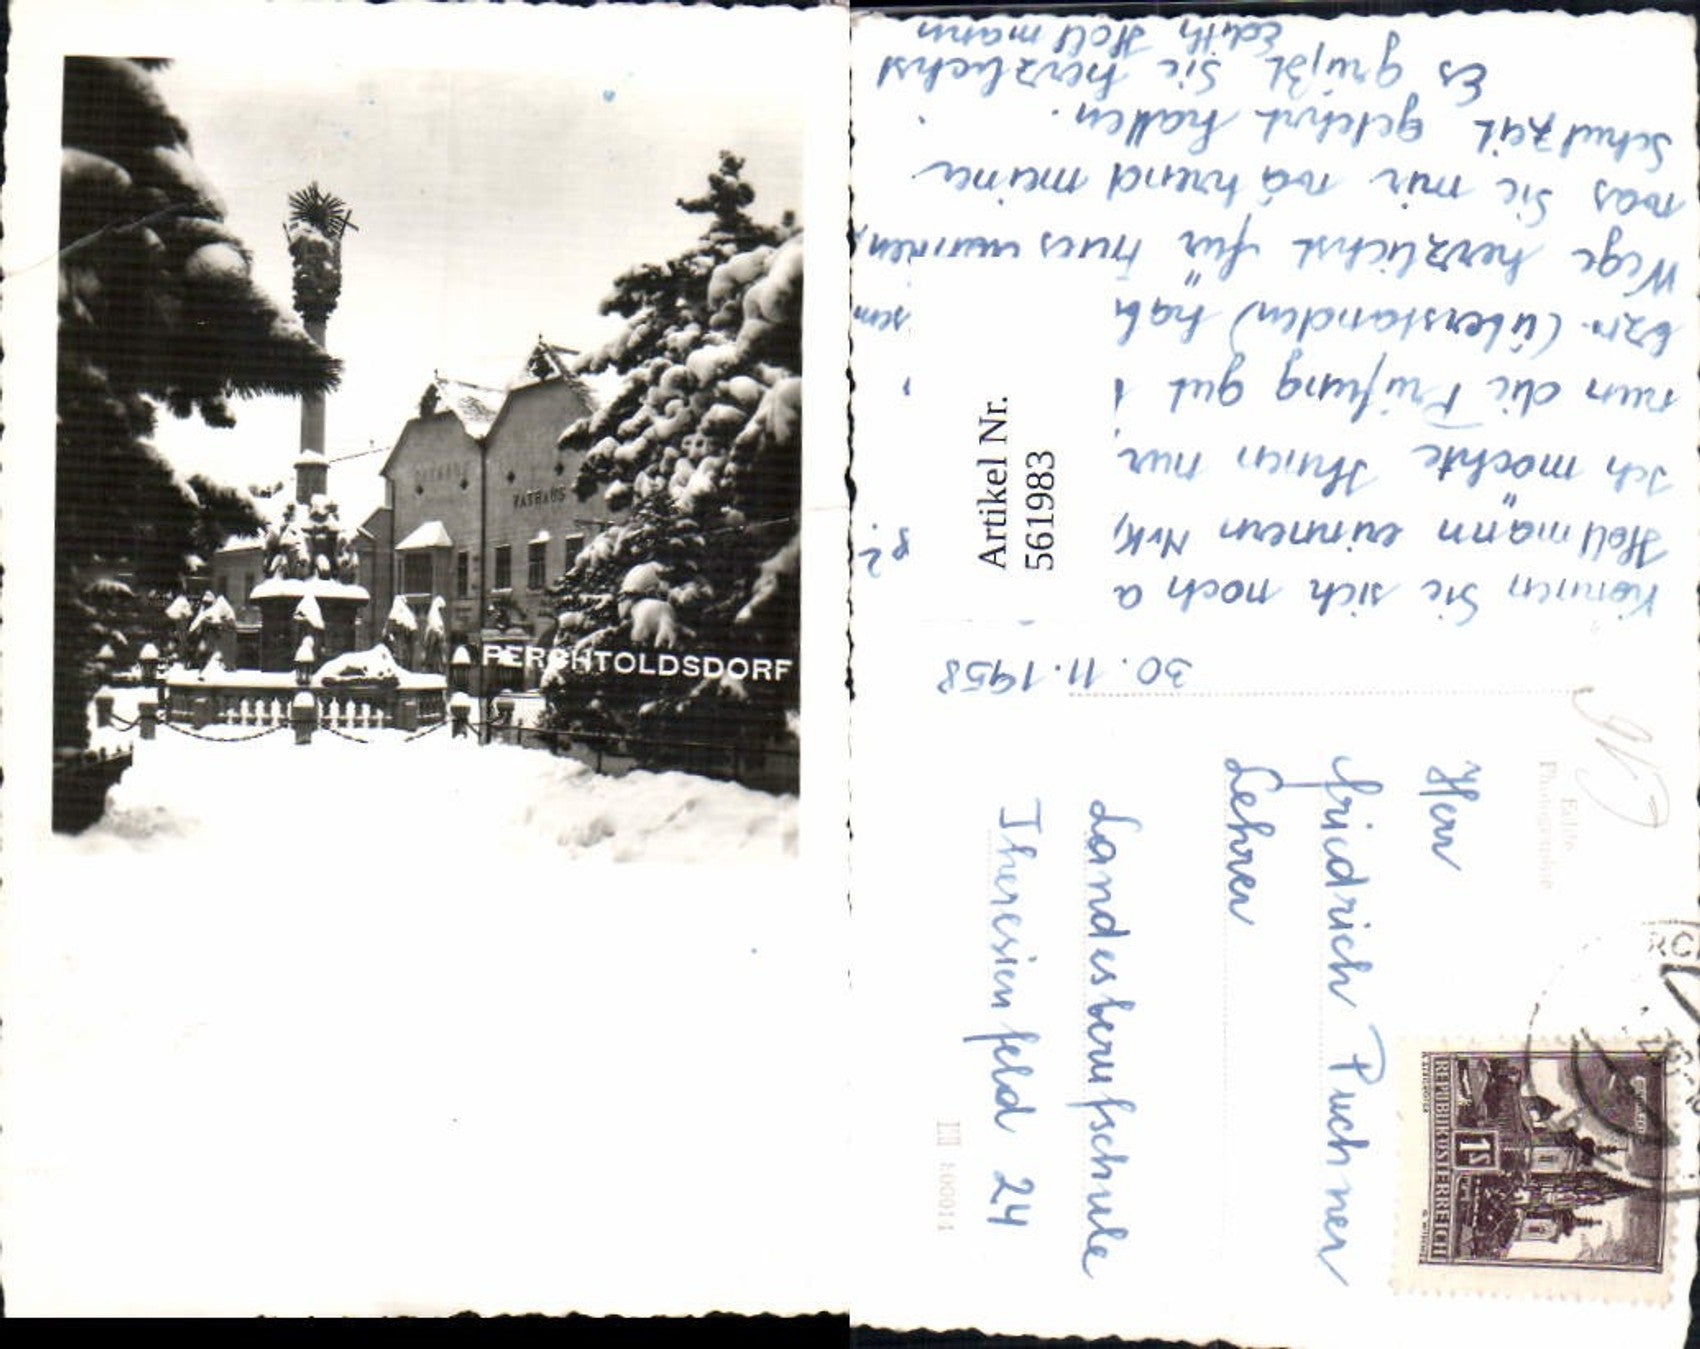 RATHAUS
PERCHTOLDSDORF
30. 11. 1958
Können Sie sich noch a
Hollmann erinnern
Ich möchte Ihnen nur
nun die Prüfung gut
bzw. (überstanden) hab
Wege herzlichst für
was Sie mir während meiner
Schulzeit gelehrt hatten.
Es grüßt Sie herzlichst
Edith Hollmann
Artikel Nr.
561983
Echte
Photographie
Herrn
Friedrich Puchner
Lehrer
Landesberufschule
Theresienfeld 24
REPUBLIK ÖSTERREICH
1S